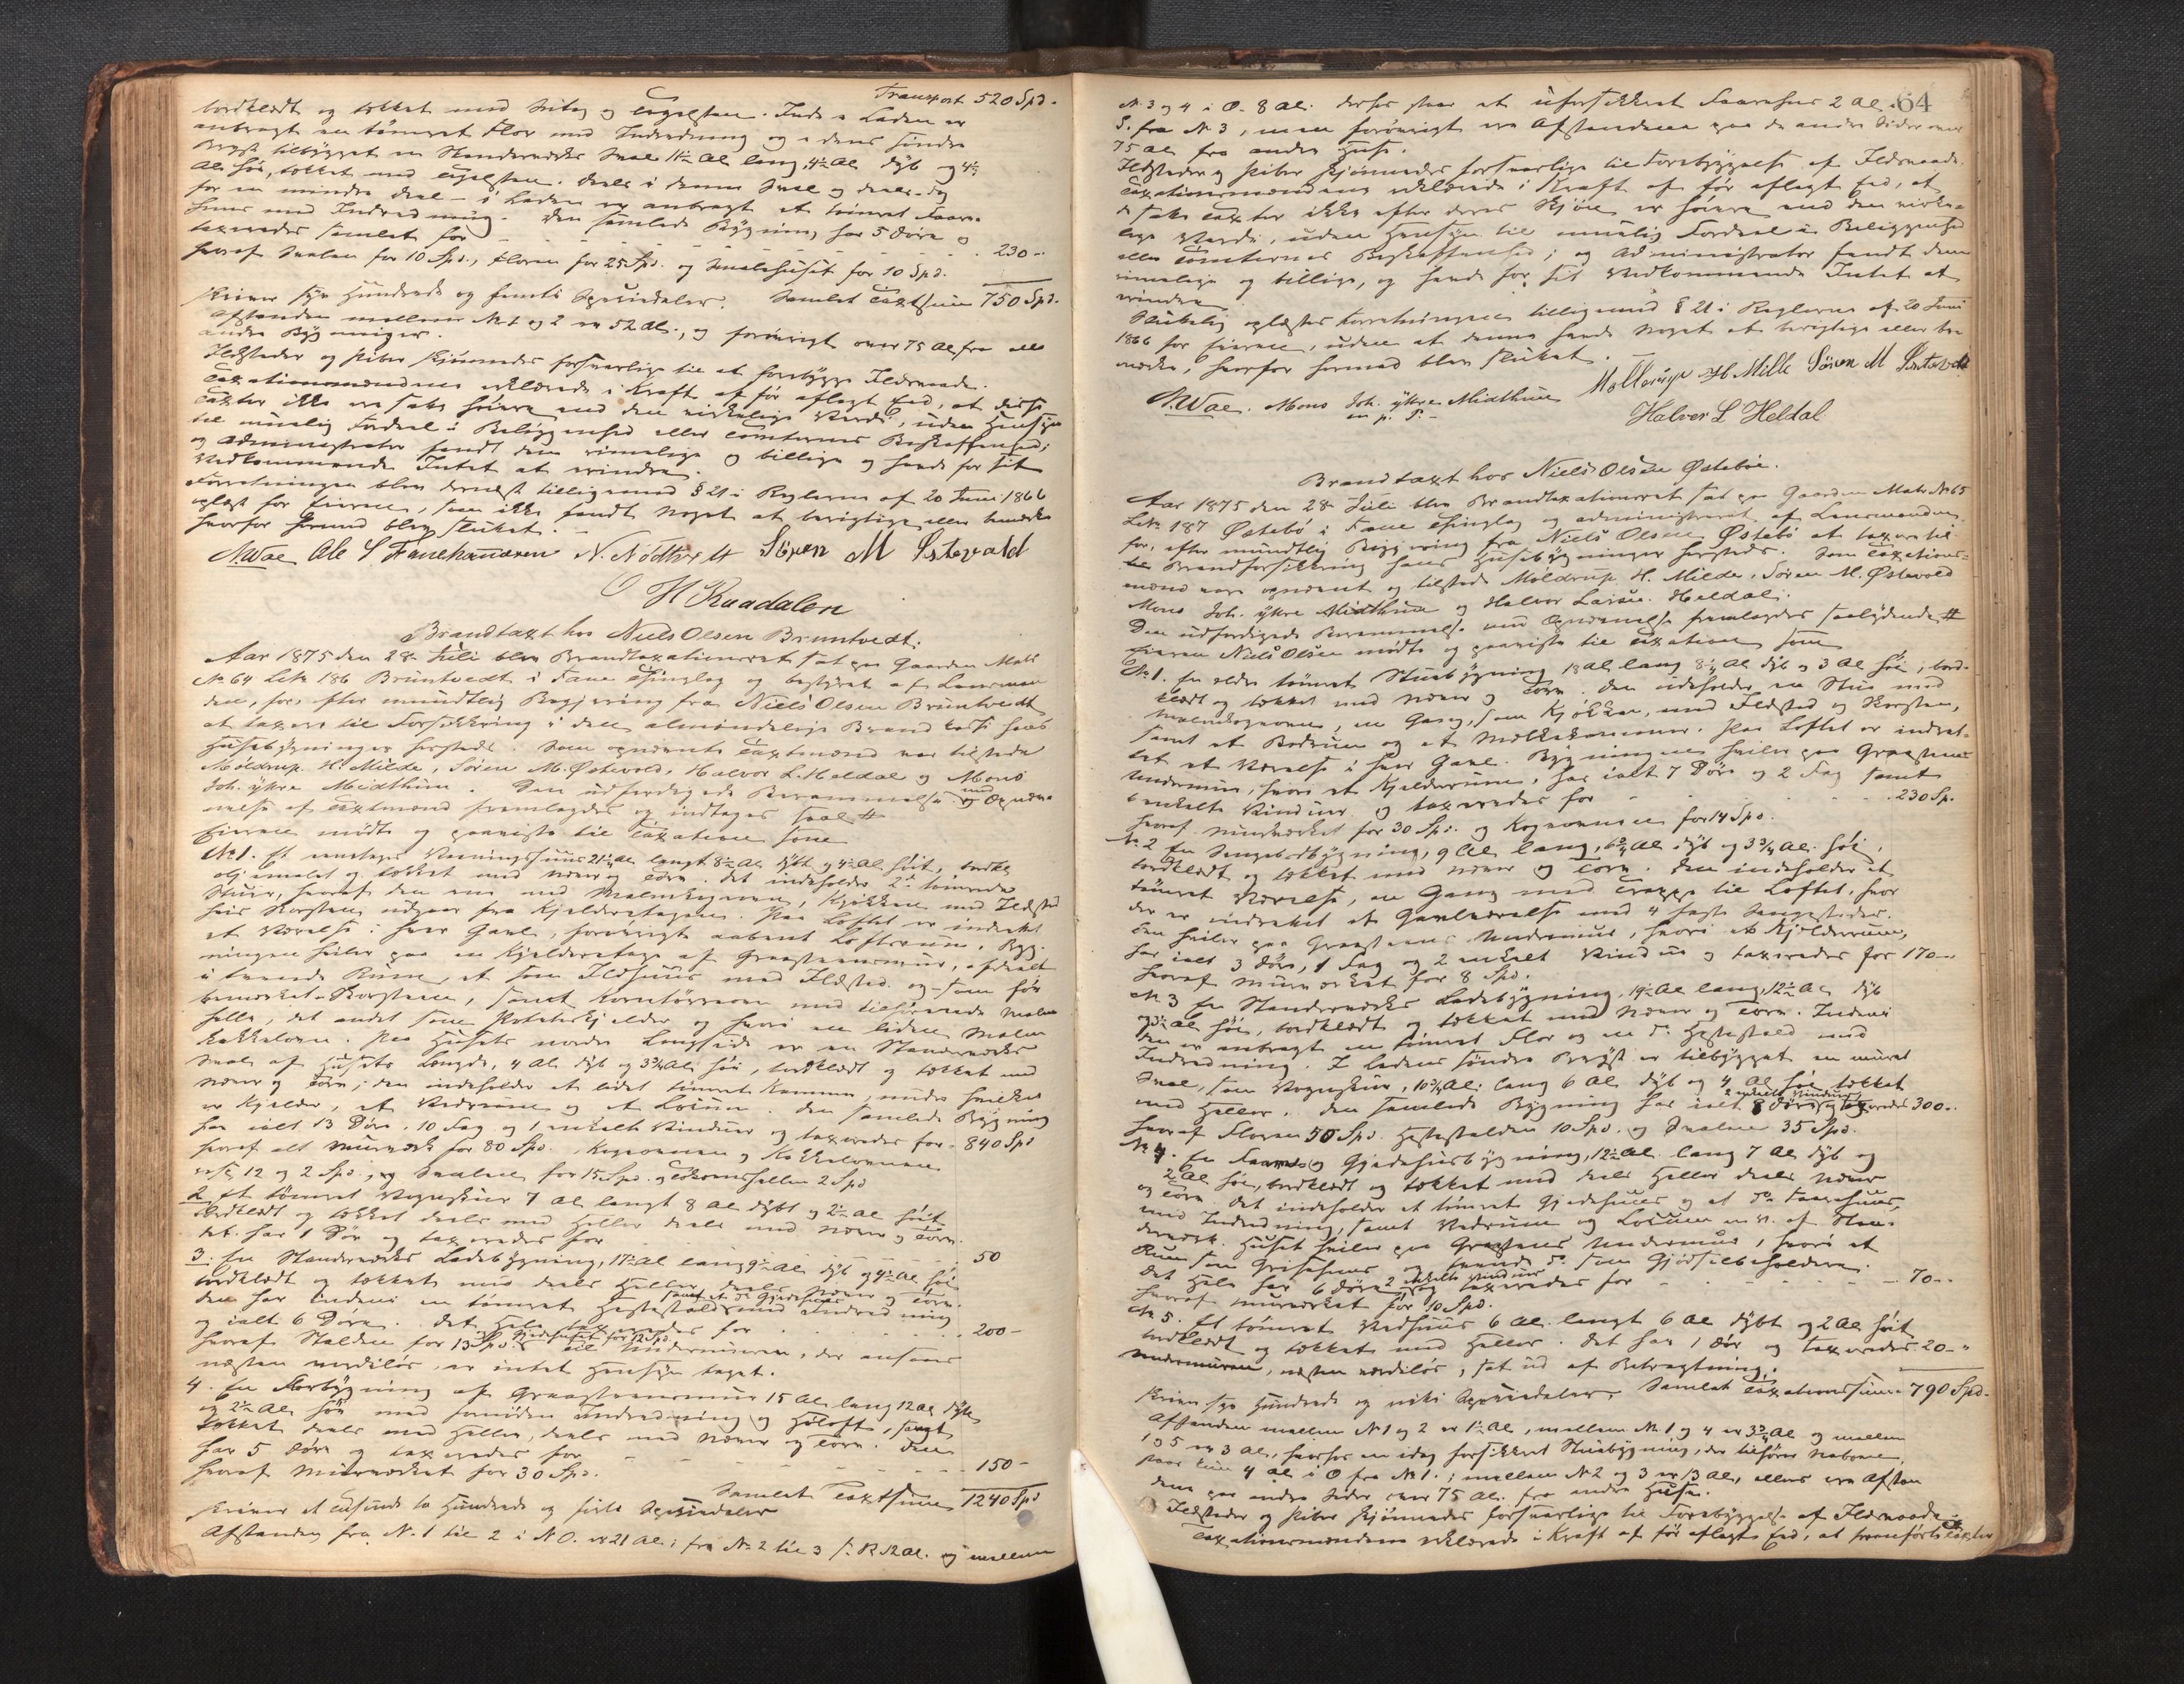 Transport 520 Spd.
bordklædt og tækket med Sutag og Tegelsten. Inde i Laden er
anbragt en tömret Flor med Indredning og i dens söndre
Bryst tilbygget en Standerværks Sval 11½ Al lang, 4½ Al dyb og 4½
Al höi, tækket med Tegelsten. Deels i denne Sval og deels dog
for en mindre Deel i Laden er anbragt et tömret Faare-
huus med Indredning. Den samlede Bygning har 5 Döre og
taxeredes samlet for 230 -
hvoraf Svalen for 10 Spd., Floren for 25 Spd. og Smalehuset for 10 Spd.
Samlet Taxtsum 750 Spd.
skriver syv Hundrede og femti Speciedaler.
Afstanden mellem No 1 og 2 er 52 Al., og forövrigt over 75 Al fra alle
andre Bygninger.
Ildsteder og Piber skjönnedes forsvarlige til at forebygge Ildsvaade.
Taxationsmændene erklærede i Kraft af för aflagt Eed, at disse
Taxter ikke ere satte höiere end den virkelige Værdi, uden Hensyn
til muelig Fordeel i Beliggenhed eller Tomternes Beskaffenhed;
og Administrator fandt dem rimelige og billige og havde for sit
Vedkommende Intet at erindre.
Forretningen blev dernæst tilligemed § 21 i Reglerne af 20 Juni 1866
oplæst for Eieren, som ikke fandt Noget at berigtige eller bemærke
hvorfor hermed blev sluttet.
A. Wae Ole S Fanehammeren N. Nödtvedt Sören M Östevold
O H Raadalen
Brandtaxt hos Niels Olsen Bruntvedt.
Aar 1875 den 28 Juli blev Brandtaxationsret sat paa Gaarden Matr
No 64 Löb 186 Bruntvedt i Fane Thinglag og bestyret af Lensman
den, for, efter mundtlig Begjæring fra Niels Olsen Bruntvedt
at taxere til Forsikkring i den almindelige Brandkasse hans
Huusebygninger hersteds. Som opnævnte Taxtmænd var tilstede
Möldrup H. Milde, Sören M. Östevold, Halvor L. Heldal og Mons
Joh. yttre Midthun. Den udfærdigede Berammelse med Opnæv-
nelse af Taxtmænd fremlagdes og indtages saal #
Eieren mödte og paaviste til Taxation som
No 1. Et eenetages Vaaningshuus 21¼ Al langt 8½ Al dybt og 4½ Al höit, bordkl.
oljemalet og tækket med Næver og Torv. Det indeholder 2de tömrede
Stuer, hvoraf den ene med Malmkogeovn, Kjökken med Ildsted
hvis Skorsteen udgaar fra Kjelderetagen. Paa Loftet er indrettet
et Værelse i hver Gavl, forövrigt aabent Loftsrum. Byg-
ningen hviler paa en Kjelderetage af Graasteensmuur, afdeelt
i tvende Rum, et som Ildhuus med Ildsted og som för
bemærket Skorsteen, samt Korntörreovn med tilhörende Malm
helle, det andet som Potetekjelder og hvori en liden Malm
kakkelovn. Paa Husets nordre Langside er en Standerværks
Sval af Husets Længde, 4 Al dyb og 3¾ Al höi, bordklædt og tækket med
Næver og Torv; den indeholder et lidet tömret Kammer, under hvilket
er Kjelder, et Vedrum og et Locum. Den samlede Bygning
har ialt 13 Döre, 10 Fag og 1 enkelt Vinduer og taxeredes for 840 Spd
hvoraf alt Muurværk for 80 Spd. Kogeovnen og Kakkelovnen
resp 12 og 2 Spd., og Svalen for 15 Spd. og Tökornshellen 2 Spd
2 Et tömret Vognskuur 7 Al langt 8 Al dybt og 2½ Al höit
bordklædt og tækket deels med Heller deels med Næver og Torv.
Det har 1 Dör og taxeredes for 50
3. En Standerværks Ladebygning, 17½ Al lang, 9½ Al dyb og 4½ Al höi
bordklædt og tækket med deels Heller deels Næver og Torv.
Den har indeni en tömret Hestestald samt et Do Gjedehuus med Indredning
og ialt 6 Döre. Det Hele taxeredes for 200 -
hvoraf Stalden for 13 Spd. Gjedehuset for 12 Spd. Til Undermuren, der ansees
næsten værdilös, er intet Hensyn taget.
4. En Florbygning af Graasteensmuur 15 Al lang 12 Al dyb
og 2½ Al höi med fornöden Indredning og Höloft, samt
tækket deels med Heller, deels med Næver og Torv. Den
har 5 Döre og taxeredes for 150 -
hvoraf Muurværket for 30 Spd.
Samlet Taxtsum 1240 Spd
skriver et Tusinde to Hundrede og firti Speciedaler
Afstanden fra N. 1 til 2 i N O. er 21 Al; fra No 2 til 3 12 Al. og mellem
64
No 3 og 4 i O. 8 Al. derhos staar et uforsikkret Faarehus 2 Al i
S. fra No 3, men forövrigt ere Afstandene paa de andre Sider over
75 Al fra andre Huse.
Ildsteder og Piber skjönnedes forsvarlige til Forebyggelse af Ildsvaade.
Taxationsmændene erklærede i Kraft af för aflagt Eed, at
de satte Taxter ikke efter deres Skjön er höiere end den virke-
lige Værdi, uden Hensyn til muelig Fordeel i Beliggenhed
eller Tomternes Beskaffenhed; og Administrator fandt dem
rimelige og billige, og havde for sit Vedkommende Intet at
erindre.
Sluttelig oplæstes Forretningen tilligemed § 21 i Reglerne af 20 Juni
1866 for Eieren, uden at denne havde Noget at berigtige eller be-
mærke, hvorfor hermed blev sluttet.
A. Wae. Mons Joh. yttre Midthun Möllerup H Milde Sören M Östevold
m. p. P.
Halvor L Heldal
Brandtaxt hos Niels Olsen Östeböe.
Aar 1875 den 28 Juli blev Brandtaxationsret sat paa Gaarden Matr No 65
Löb 187 Östebö i Fane Thinglag og administreret af Lensmanden
for, efter mundtlig Begjæring fra Niels Olsen Östebö at taxere til
Brandforsikkring hans Huusebygninger hersteds. Som Taxations-
mænd vare opnævnt og tilstede Möldrup H. Milde, Sören M. Östevold
Mons Joh. yttre Midthun og Halvor Larsen Heldal.
Den udfærdigede Berammelse med Opnævnelse fremlagdes saalydende #
Eieren Niels Olsen mödte og paaviste til Taxation som
No 1. En ældre tömret Stuebygning 18 Al lang 8¼ Al dyb og 3 Al höi, bord-
klædt og tækket med Næver og Torv. Den indeholder en Stue med
Malmkogeovn, en Gang, som Kjökken, med Ildsted og Skorsten,
samt et Bodrum og et Melkekammer. Paa Loftet er indret-
tet et Værelse i hver Gavl. Bygningen hviler paa Graasteens
Undermuur, hvori et Kjelderrum, har ialt 7 Döre og 2 Fag samt
6 enkelte Vinduer og taxeredes for 230 Sp.
hvoraf Muurværket for 30 Spd. og Kogeovnen for 14 Spd.
No 2 En Sengebodbygning, 9 Al lang, 6¾ Al dyb og 3¾ Al. höi,
bordklædt og tækket med Næver og Torv. Den indeholder et
tömret Værelse, en Gang med Trappe til Loftet, hvor
der er indrettet et Gavlværelse med 4 faste Sengesteder.
Den hviler paa Graasteens Undermuur, hvori et Kjelderrum,
har ialt 3 Döre, 1 Fag og 2 enkelt Vinduer og taxeredes for 170 -
hvoraf Muurværket for 8 Spd.
No 3 En Standerværks Ladebygning, 19½ Al lang, 12½ Al dyb
og 3½ Al höi, bordklædt og tækket med Næver og Torv. Indeni
den er anbragt en tömret Flor og en Do Hestestald med
Indredning. I Ladens söndre Bryst er tilbygget en muret
Sval, som Vognskuur, 10¾ Al: lang 6 Al dyb og 4 Al höi tækket
med Heller. Den samlede Bygning har ialt 8 Döre 2 enkelte Vinduer og taxeredes 300 -
hvoraf Floren 50 Spd. Hestestalden 10 Spd. og Svalen 35 Spd.
No 4. En Faare og Gjedehusbygning, 12½ Al. lang 7 Al dyb og
2¾ Al höi, bordklædt og tækket med deels Heller deels Næver
og Torv. Det indeholder et tömret Gjedehuus og et Do Faarehuus,
med Indredning, samt Vedrum og Locum m. v. af Stan-
derværk. Huset hviler paa Graasteens Undermuur, hvori et
Rum som Grisehuus og tvende Do som Gjödselbeholdere.
Det Hele har 6 Döre 2 enkelte Vinduer og taxeredes for 70 -
hvoraf Muurværket for 10 Spd.
No 5. Et tömret Vedhuus 6 Al. langt 6 Al dybt og 2 Al höit
bordklædt og tækket med Heller. Det har 1 Dör og taxeredes 20 -
Undermuren, næsten værdilös, sat ud af Betragtning.
Samlet Taxationssum 790 Spd.
skriver syv Hundrede og nitti Speciedaler.
Afstanden mellem No 1 og 2 er 1½ Al, mellem No 1 og 4 er 3¾ Al og mellem
1 og 5 er 3 Al, hvorhos en idag forsikkret Stuebygning, der tilhörer Naboen,
staar kun 4 Al i O fra No 1.; mellem No 2 og 3 er 13 Al, ellers ere Afstan
dene paa andre Sider over 75 Al. fra andre Huse.
Ildsteder og Piber skjönnedes forsvarlige til Forebyggelse af Ildsvaade.
Taxationsmændene erklærede i Kraft af för aflagt Eed, at fremförte Taxter